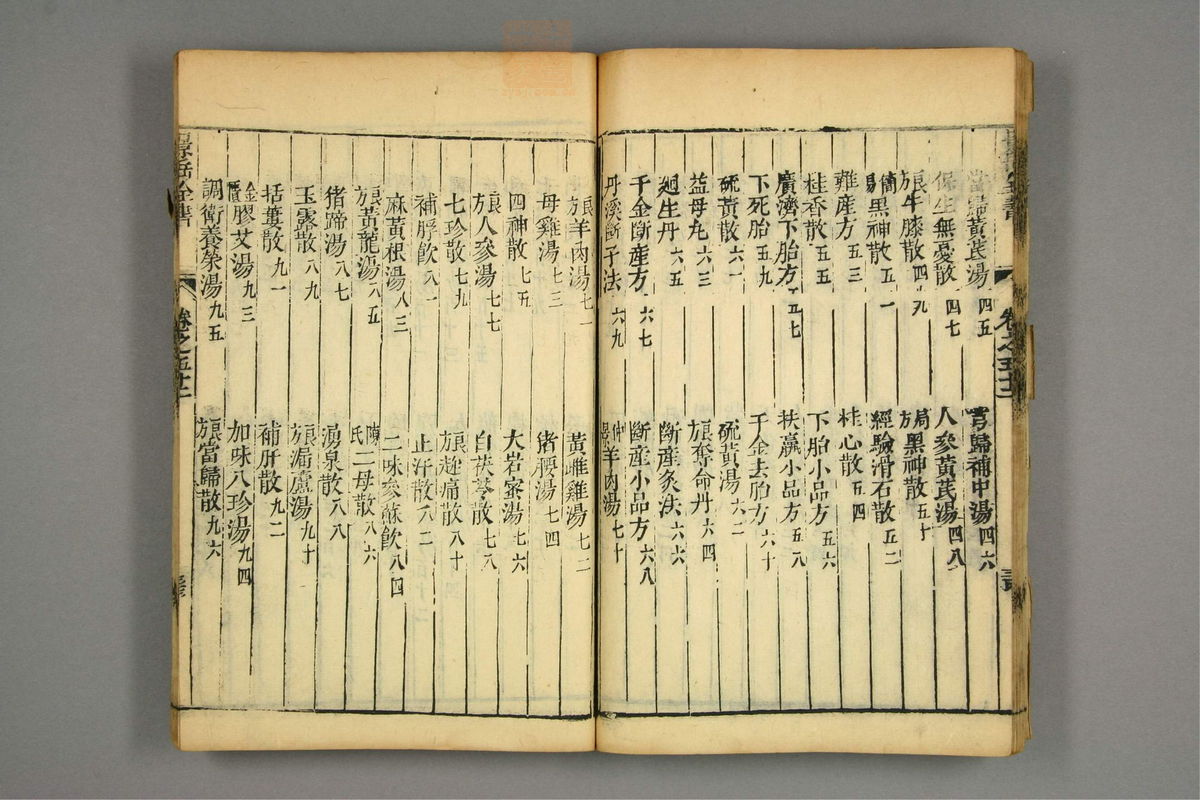 當歸黃芪湯 四五
芎歸補中湯 四六
保生無憂散 四七
人參黃芪湯 四八
良方牛膝散 四九
局方黑神散 五十
簡易黑神散 五一
經驗滑石散 五二
難產方 五三
桂心散 五四
桂香散 五五
下胎小品方 五六
廣濟下胎方 五七
扶羸小品方 五八
下死胎 五九
千金去胎方 六十
硫黃散 六一
硫黃湯 六二
益母丸 六三
良方奪命丹 六四
廻生丹 六五
斷產灸法 六六
千金斷產方 六七
斷產小品方 六八
丹溪斷子法 六九
仲景羊肉湯 七十
良方羊肉湯 七一
黃雌雞湯 七二
母雞湯 七三
猪腰湯 七四
四神散 七五
大岩蜜湯 七六
良方人參湯 七七
白茯苓散 七八
七珍散 七九
良方趂痛散 八十
補脬飲 八一
止汗散 八二
麻黃根湯 八三
二味參蘇飲 八四
良方黃龍湯 八五
陳氏二母散 八六
猪蹄湯 八七
湧泉散 八八
玉露散 八九
良方漏蘆湯 九十
括蔞散 九一
補肝散 九二
金匱膠艾湯 九三
加味八珍湯 九四
調衛養榮湯 九五
良方當歸散 九六
景岳全書
卷之五十二